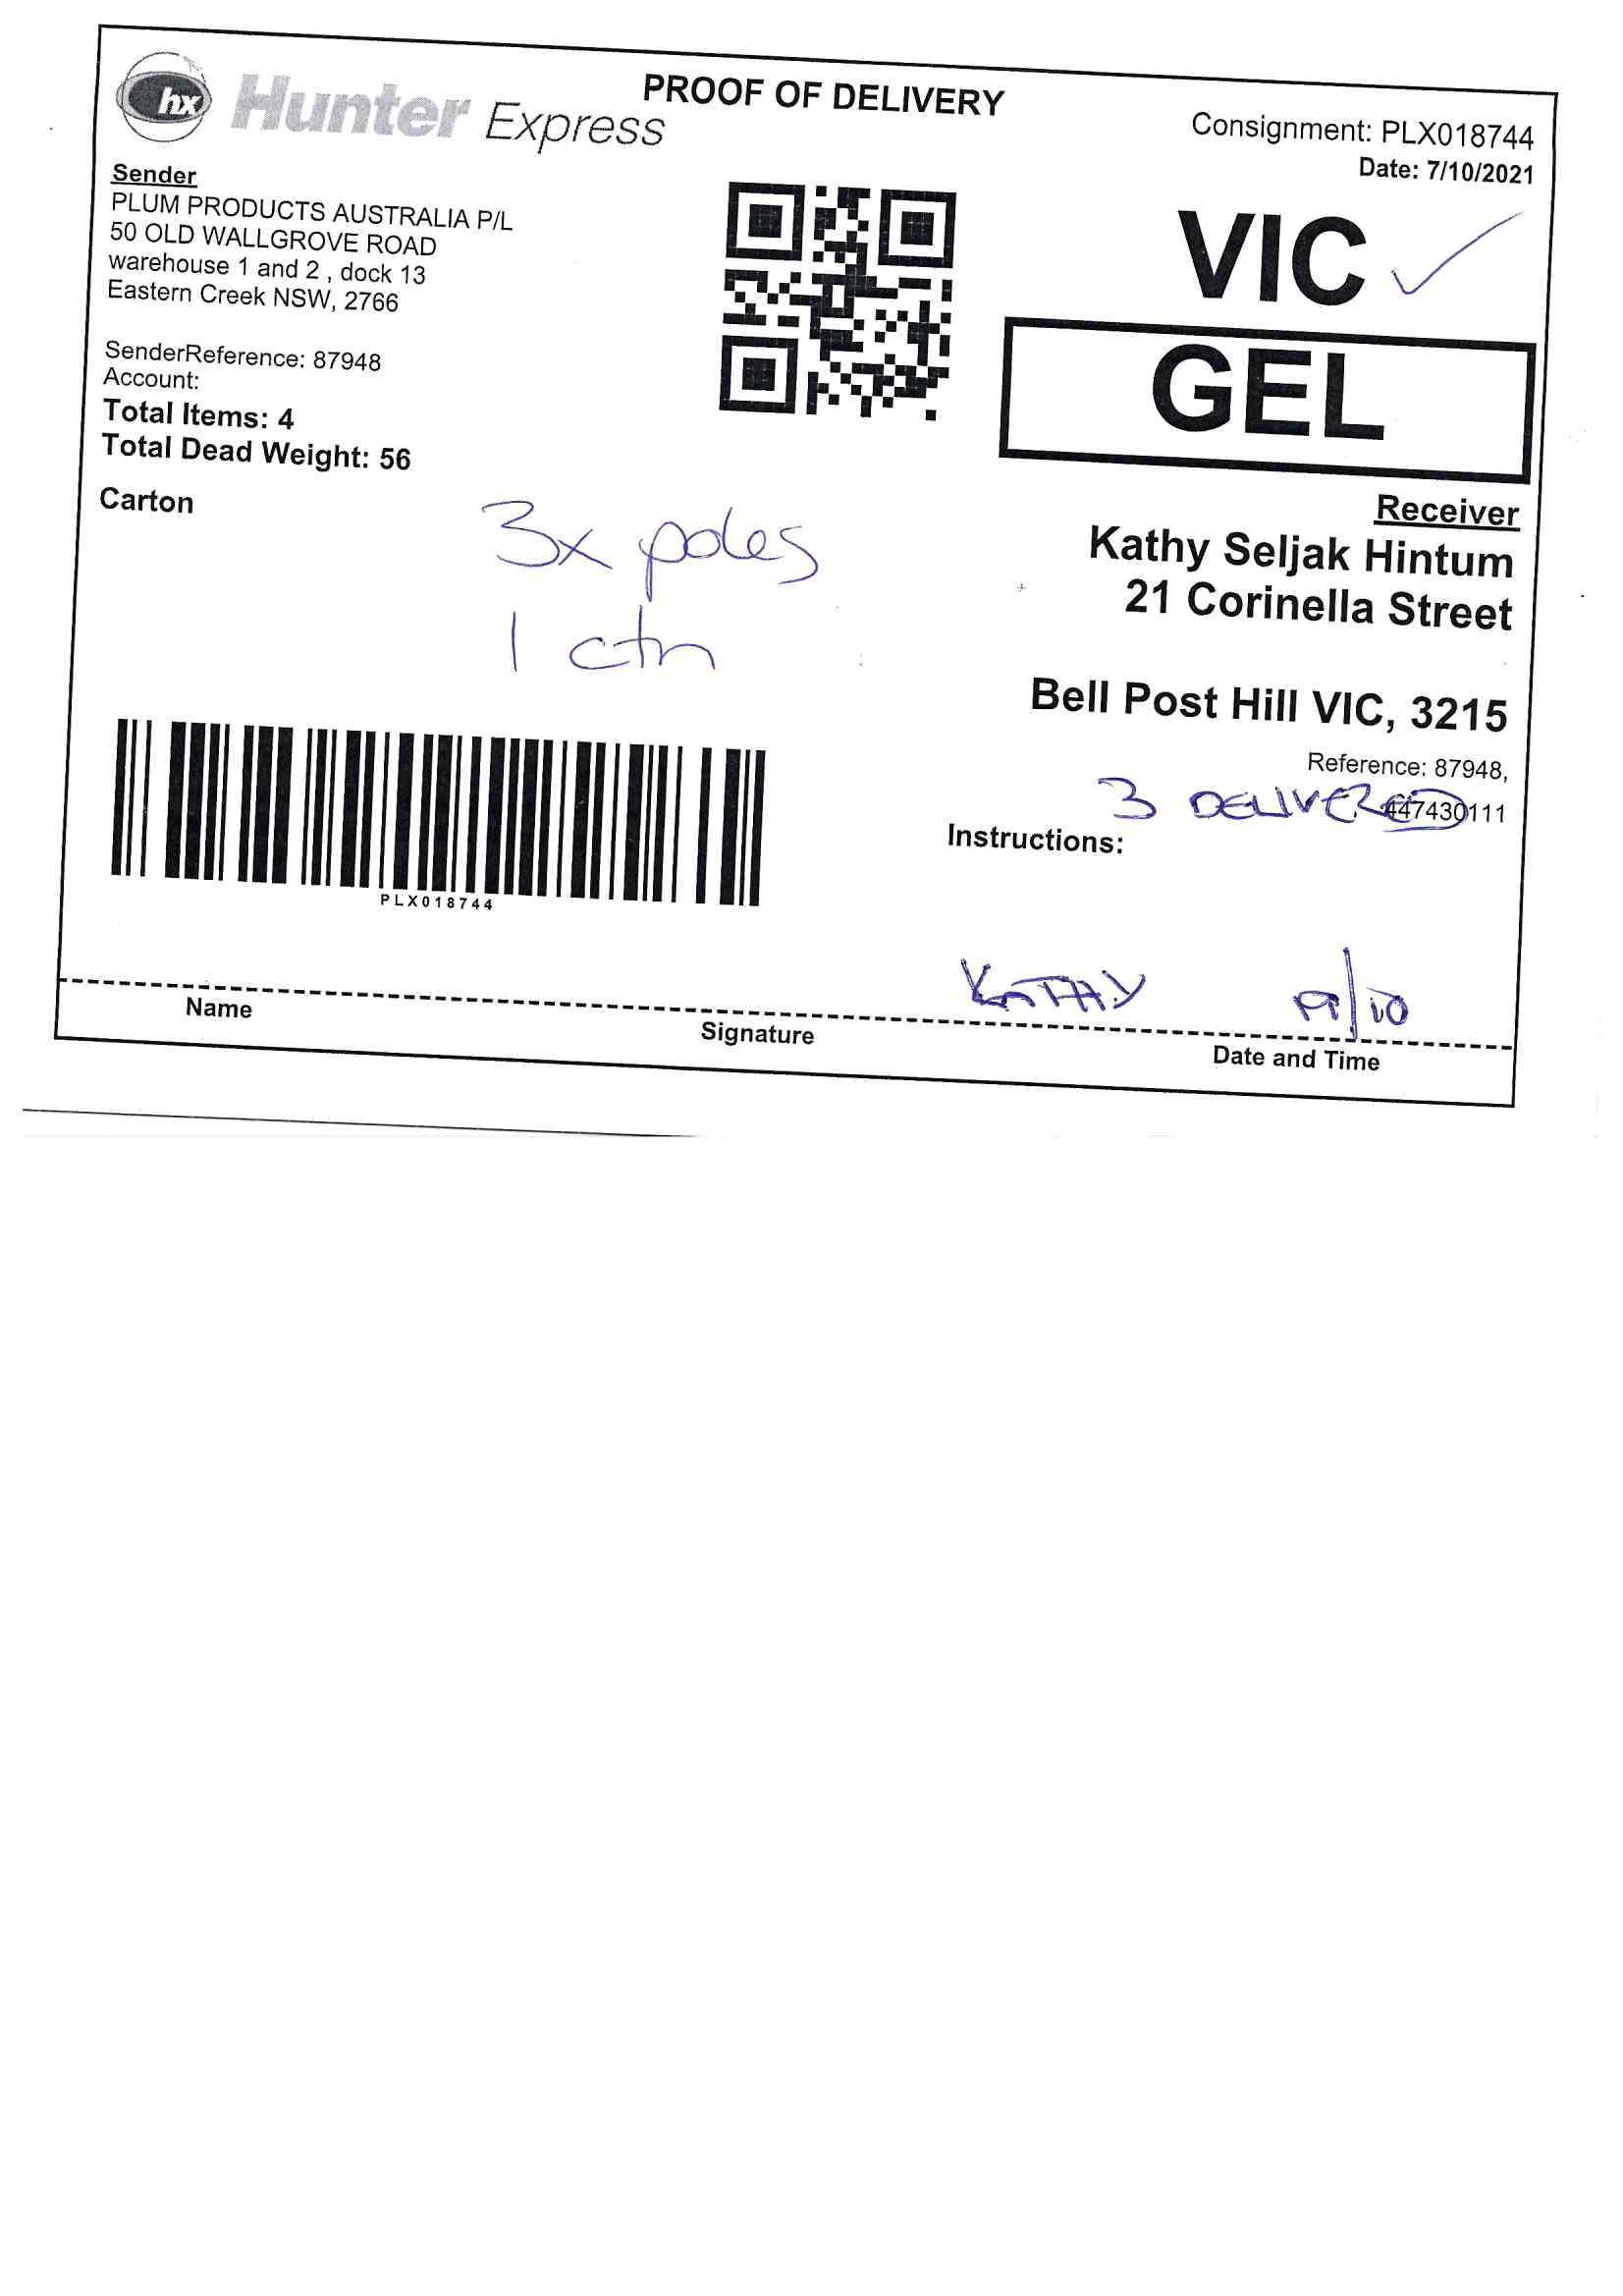 hx Hunter Express
PROOF OF DELIVERY
Consignment: PLX018744
Date: 7/10/2021
Sender
PLUM PRODUCTS AUSTRALIA P/L
50 OLD WALLGROVE ROAD
warehouse 1 and 2 , dock 13
Eastern Creek NSW, 2766
SenderReference: 87948
Account:
Total Items: 4
Total Dead Weight: 56
Carton
3x poles
1 ctn
VIC
GEL
Receiver
Kathy Seljak Hintum
21 Corinella Street
Bell Post Hill VIC, 3215
Reference: 87948,
447430111
3 DELIVERED
Instructions:
PLX018744
KATHY
Name
Signature
Date and Time